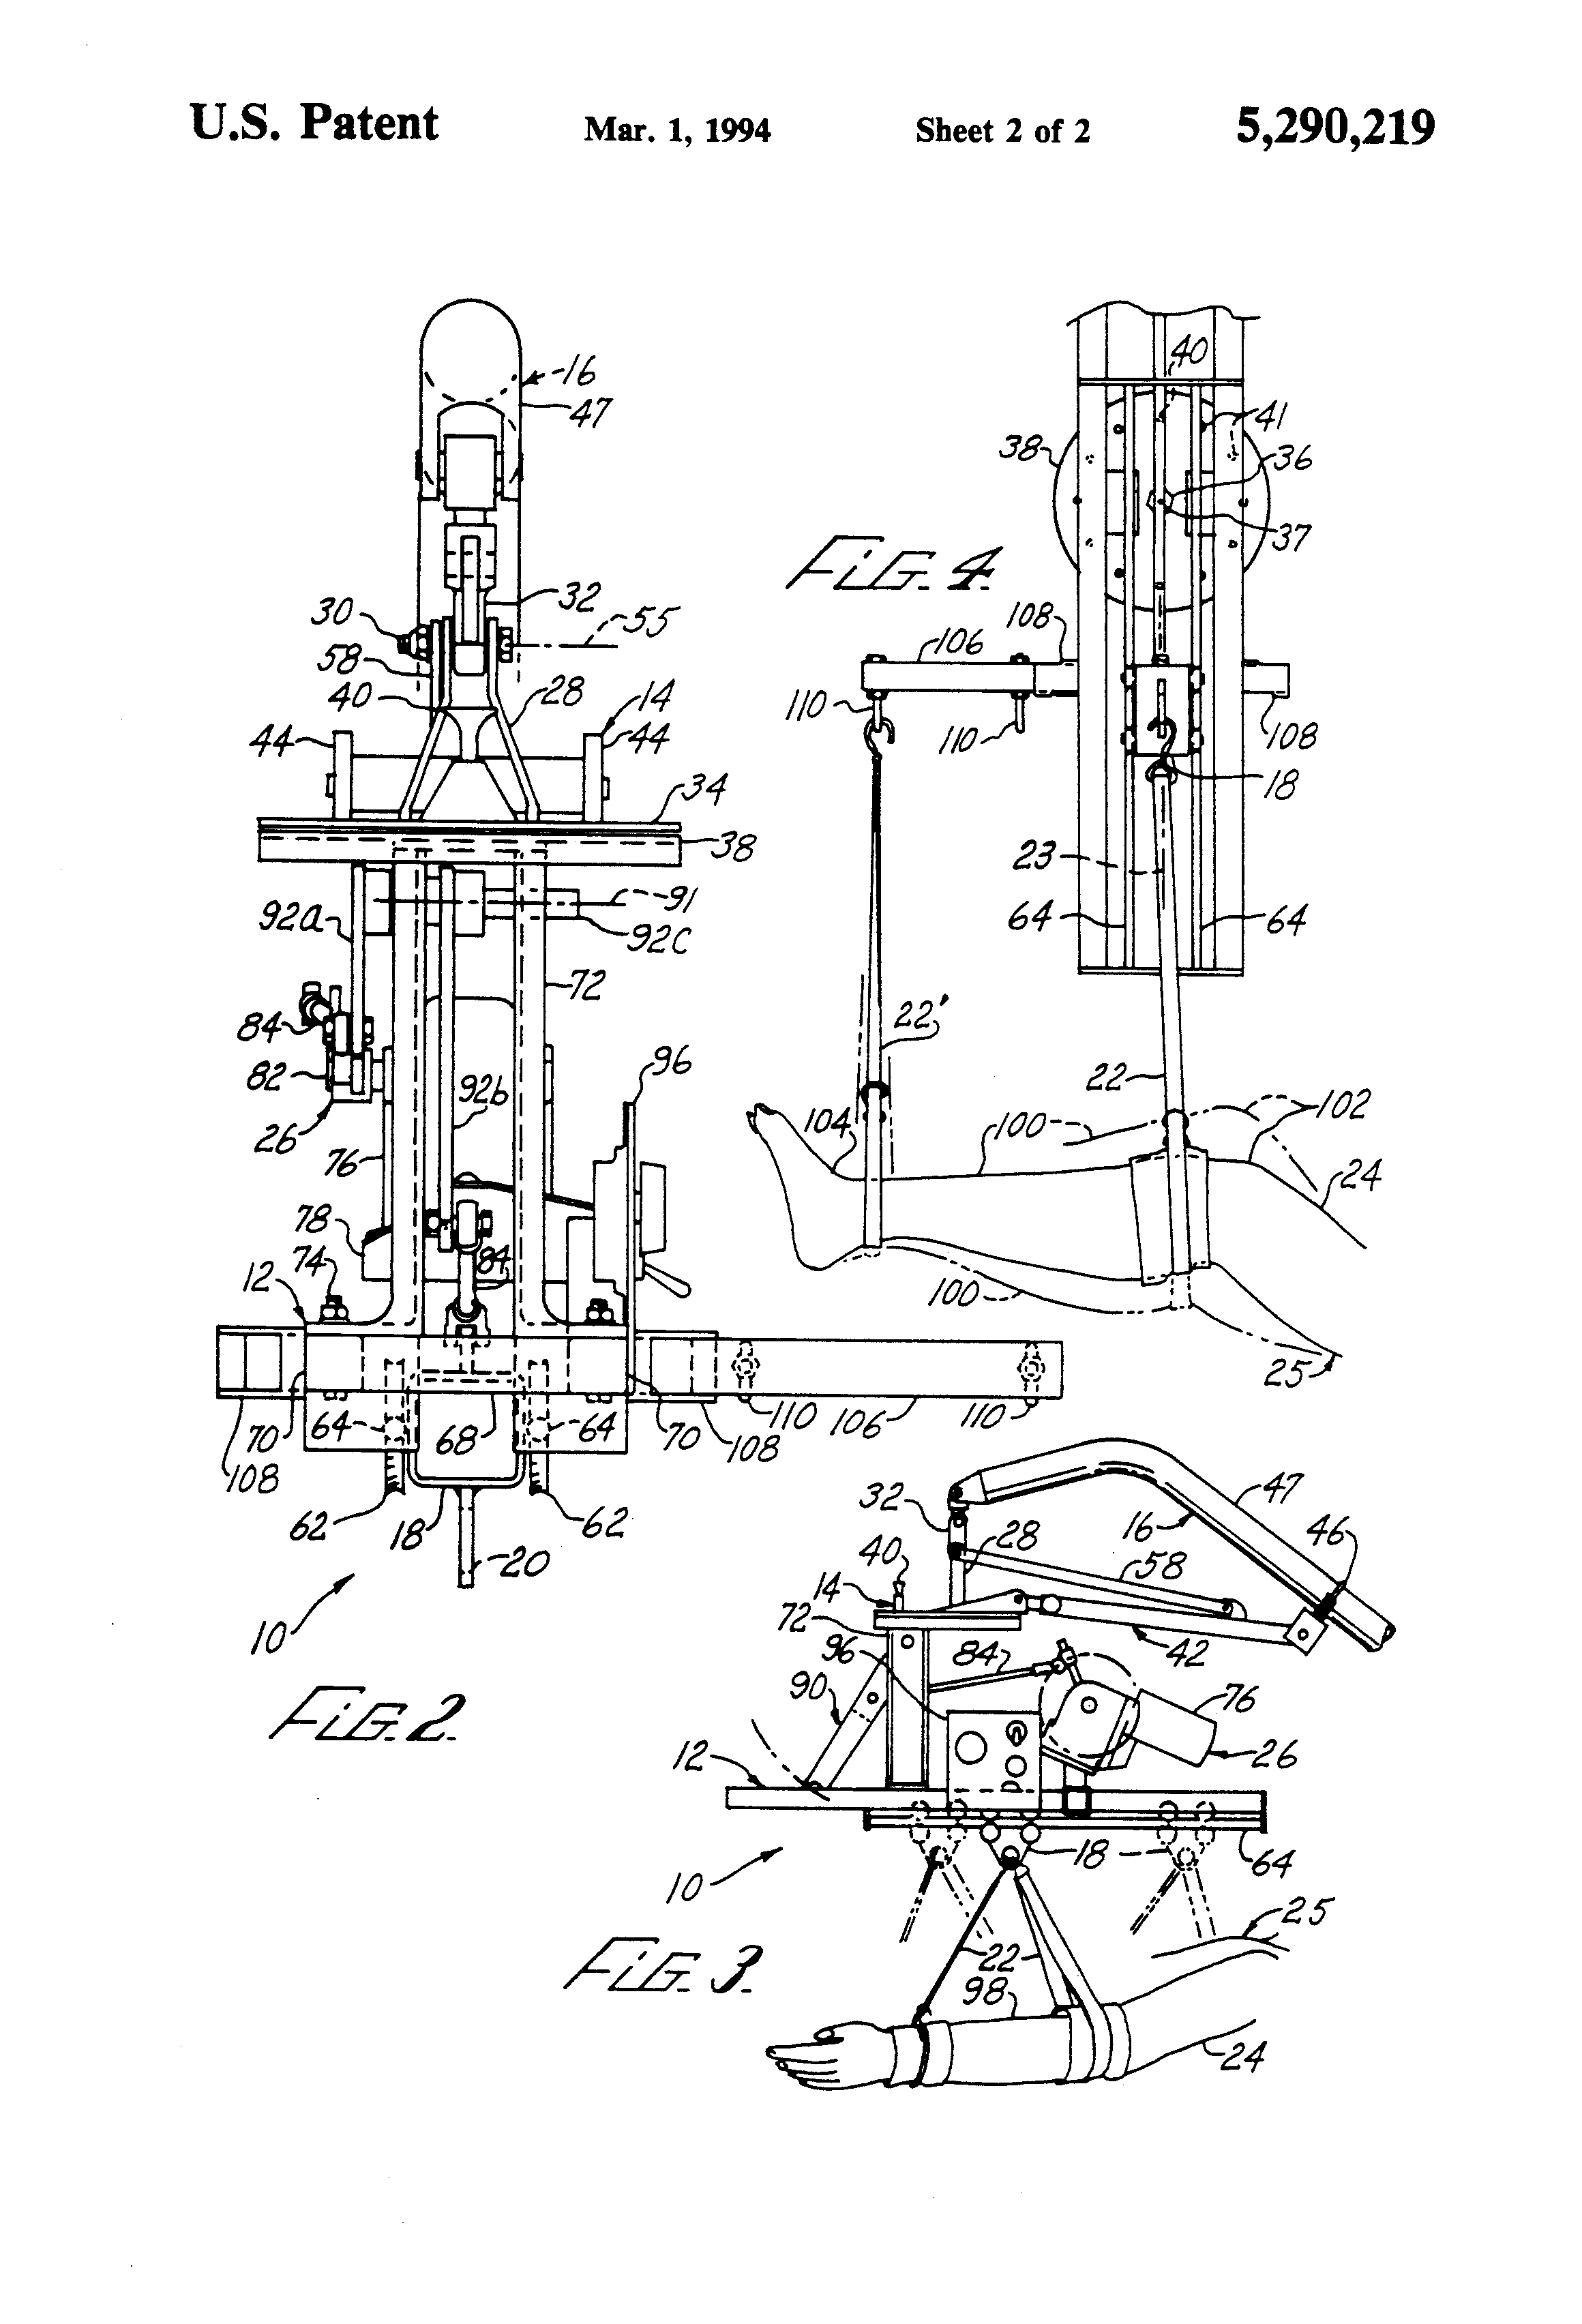 U.S. Patent Mar. 1, 1994 Sheet 2 of 2 5,290,219
16
47
32
30
55
58
40
28
14
44
44
34
38
91
92a
92c
72
84
82
96
92b
26
76
78
84
74
12
64
64
110
106
110
70
68
70
108
108
62
18
62
20
10
FIG. 2
40
41
38
36
37
FIG. 4
108
106
110
110
108
18
23
64
64
22'
22
102
104
100
24
100
25
47
32
16
46
28
40
58
14
72
42
96
84
90
76
12
26
18
64
10
25
FIG. 3
22
98
24